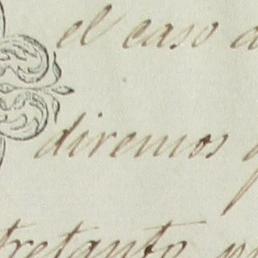 el caso a
diremos q
tretanto